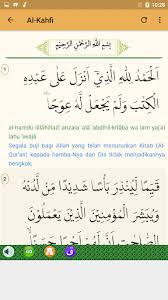 10:28
Al-Kahfi
بِسْمِ اللّٰهِ الرَّحْمٰنِ الرَّحِيْمِ
1
اَلْحَمْدُ لِلّٰهِ الَّذِيْٓ اَنْزَلَ عَلٰى عَبْدِهِ
الْكِتٰبَ وَلَمْ يَجْعَلْ لَّهٗ عِوَجًا
al-hamdu lillāhillażī anzala 'alā 'abdihil-kitāba wa lam yaj'al
lahụ 'iwajā
Segala puji bagi Allah yang telah menurunkan Kitab (Al-
Qur'an) kepada hamba-Nya dan Dia tidak menjadikannya
bengkok;
2
قَيِّمًا لِّيُنْذِرَ بَأْسًا شَدِيْدًا مِّنْ لَّدُنْهُ
وَيُبَشِّرَ الْمُؤْمِنِيْنَ الَّذِيْنَ يَعْمَلُوْنَ